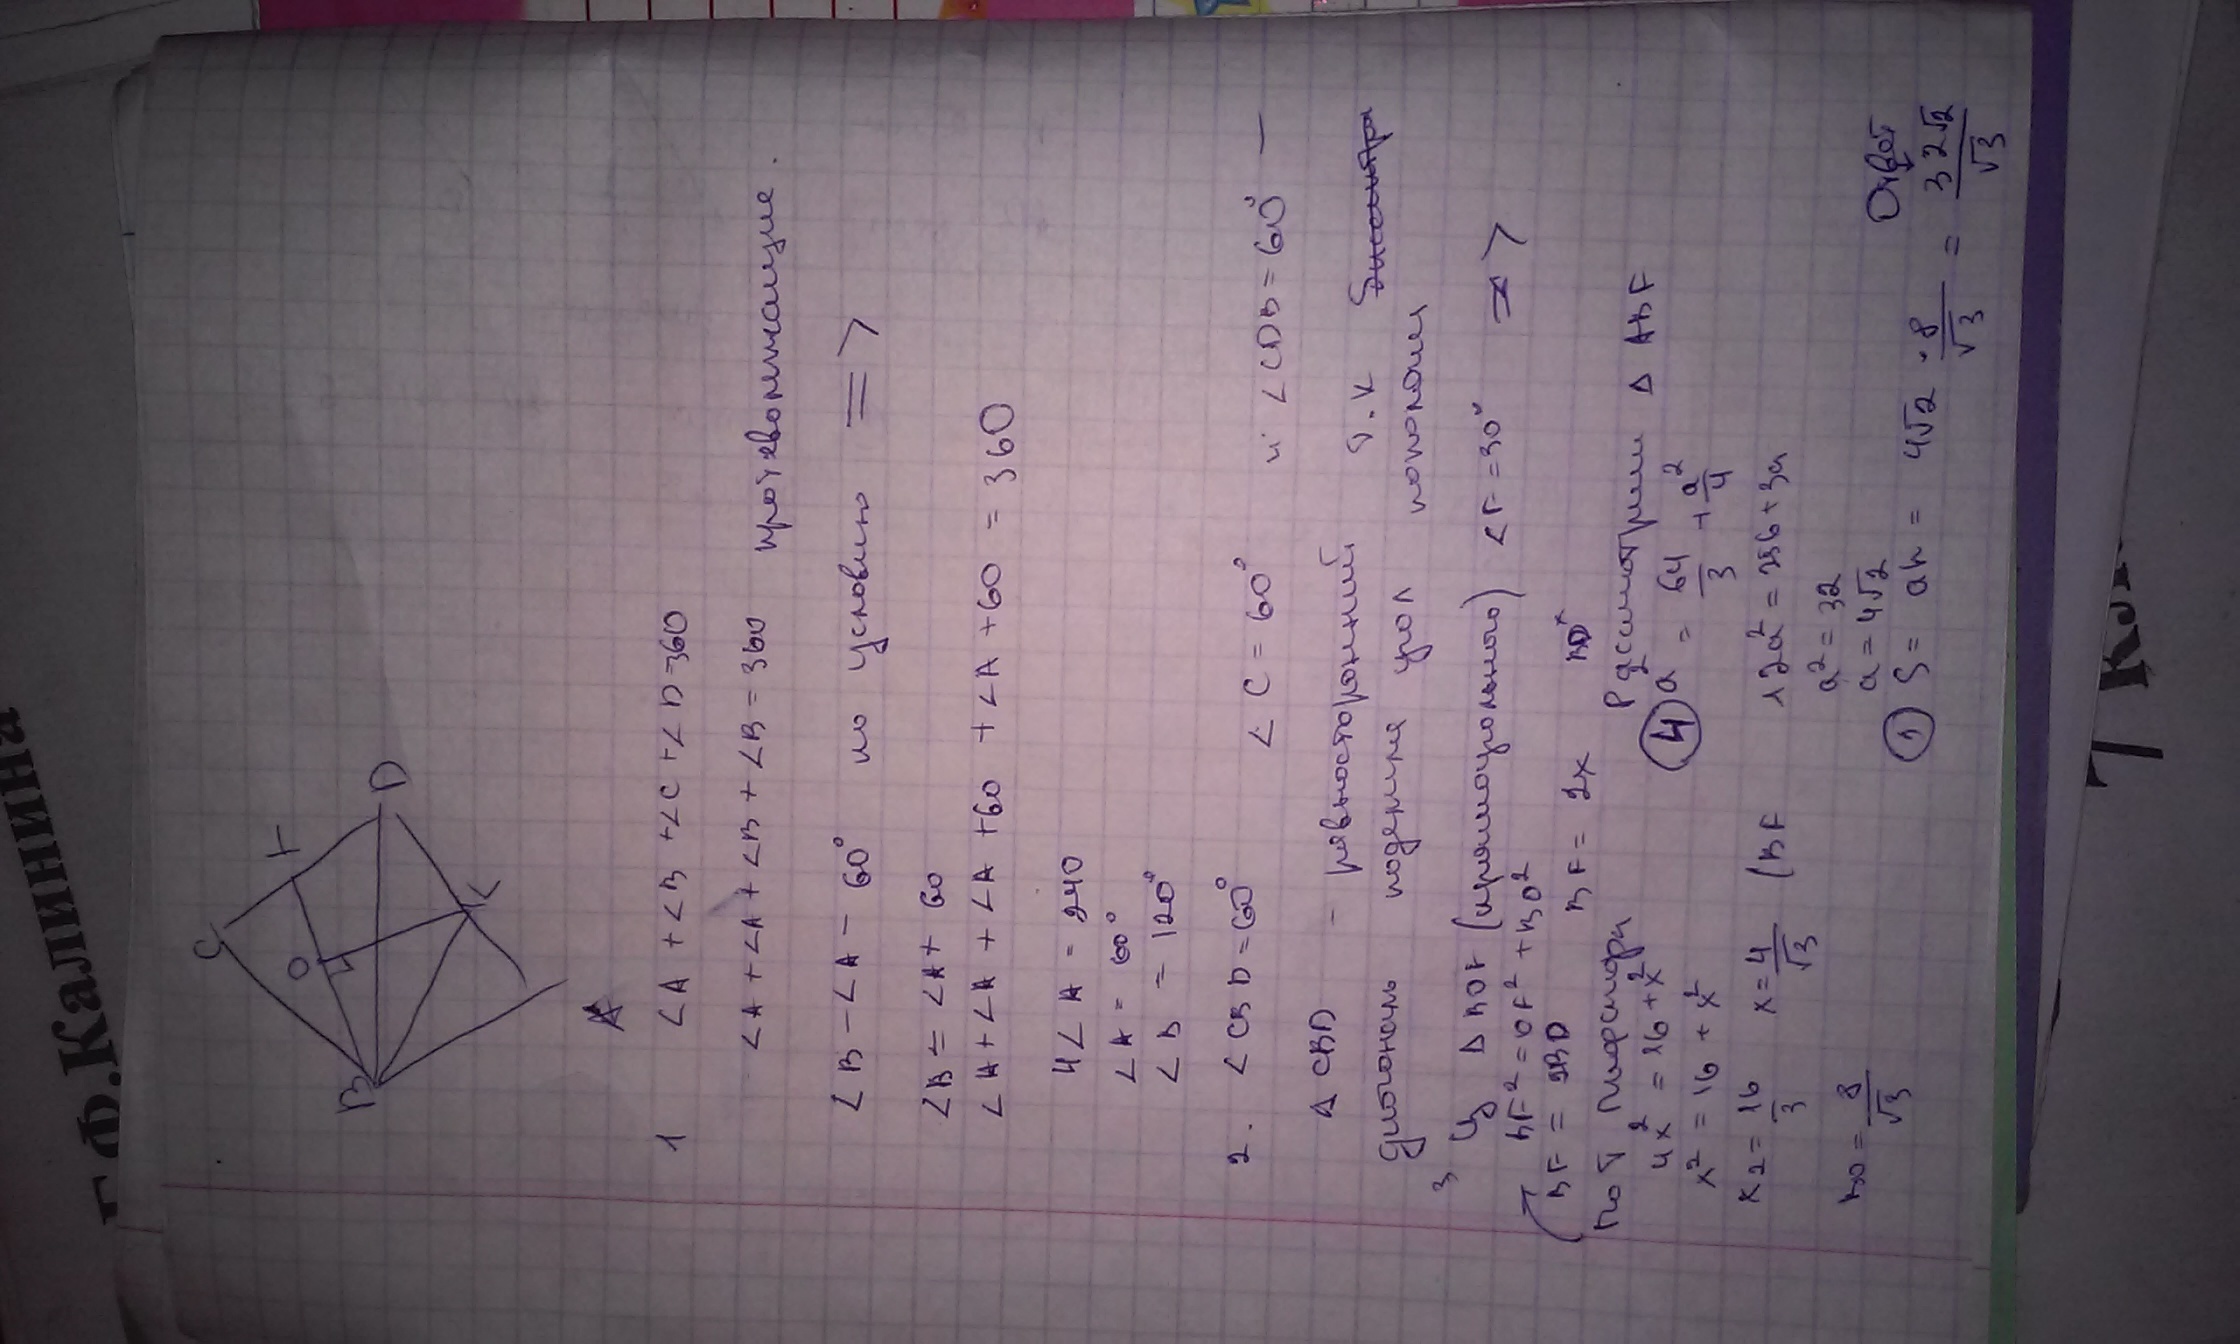 Г.Ф.Калинина
C
F
O
4
D
B
K
A
1 ∠A + ∠B + ∠C + ∠D = 360
∠A + ∠A + ∠B + ∠B = 360 противолежащие.
∠B - ∠A - 60° по условию =>
∠B = ∠A + 60
∠A + ∠A + ∠A + 60 + ∠A + 60 = 360
4∠A = 240
∠A = 60°
∠B = 120°
2. ∠CBD = 60° ∠C = 60° и ∠CDB = 60° —
Δ CBD - равносторонний т.к
диагональ поделила угол пополам
3 Из Δ BOF (прямоугольного) ∠F = 30° =>
BF² = OF² + BO²
BF = 2BO BF = 2x
По Т Пифагора
4x² = 16 + x²
x² = 16 + x²
x2 = 16/3 x = 4/√3 (BF
BO = 8/√3
Рассмотрим Δ ABF
4 a² = 64/3 + a²/4
12a² = 256 + 3a
a² = 32
a = 4√2
1 S = ah = 4√2 · 8/√3 = 32√2/√3
Ответ
7